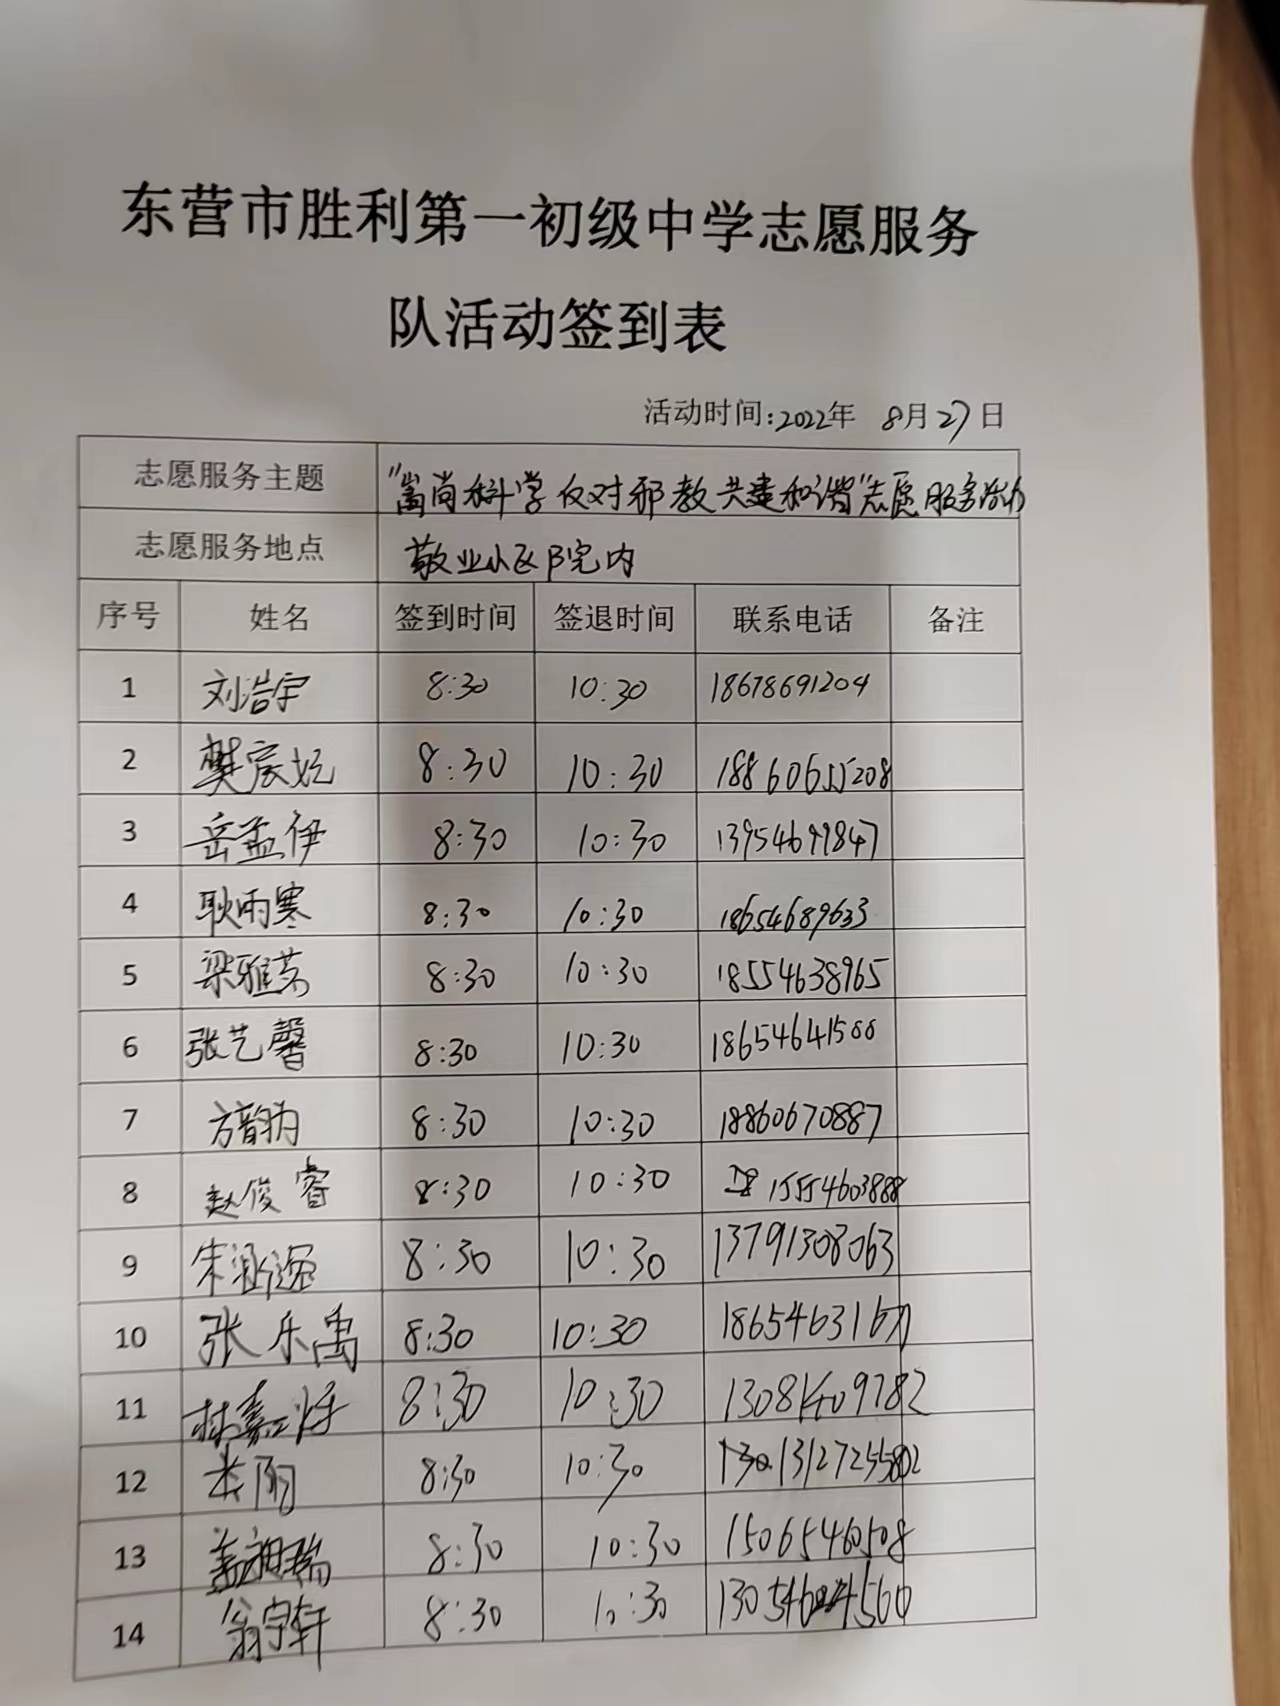 东营市胜利第一初级中学志愿服务
队活动签到表
活动时间:2022年 8月27日
志愿服务主题 "嵩尚科学反对邪教共建和谐"志愿服务活动
志愿服务地点 敬业小区院内
序号 姓名 签到时间 签退时间 联系电话 备注
1 刘浩宇 8:30 10:30 18678691204
2 樊宸妃 8:30 10:30 18860655208
3 岳孟伊 8:30 10:30 13954699847
4 耿雨寒 8:30 10:30 18654689633
5 梁雅芮 8:30 10:30 18554638965
6 张艺馨 8:30 10:30 18654641588
7 方韵 8:30 10:30 18860670887
8 赵俊睿 8:30 10:30 15554603888
9 朱涵逸 8:30 10:30 13791308063
10 张乐禹 8:30 10:30
11 林嘉烨 8:30 10:30
12 8:30 10:30 13127255802
13 盖翔瑞 8:30 10:30 15065460508
14 翁宁轩 8:30 10:30